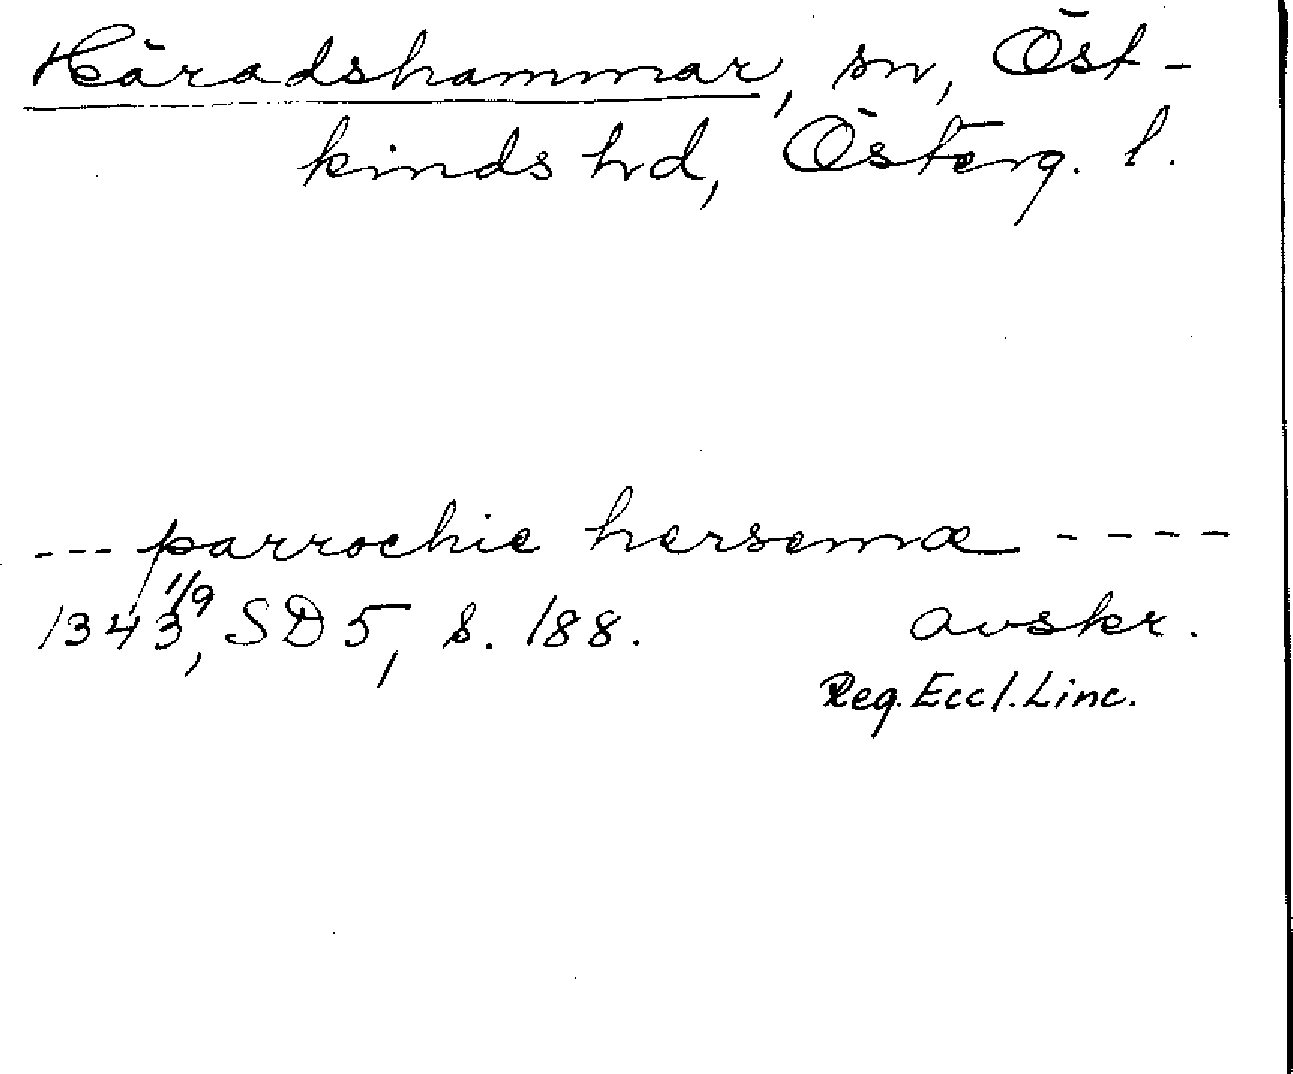 Häradshammar, sn, Öst-
kinds hd, Österg. l.
--- parrochie hersemæ ----
1343 1/9, SD 5, s. 188. avskr.
Reg. Eccl. Linc.